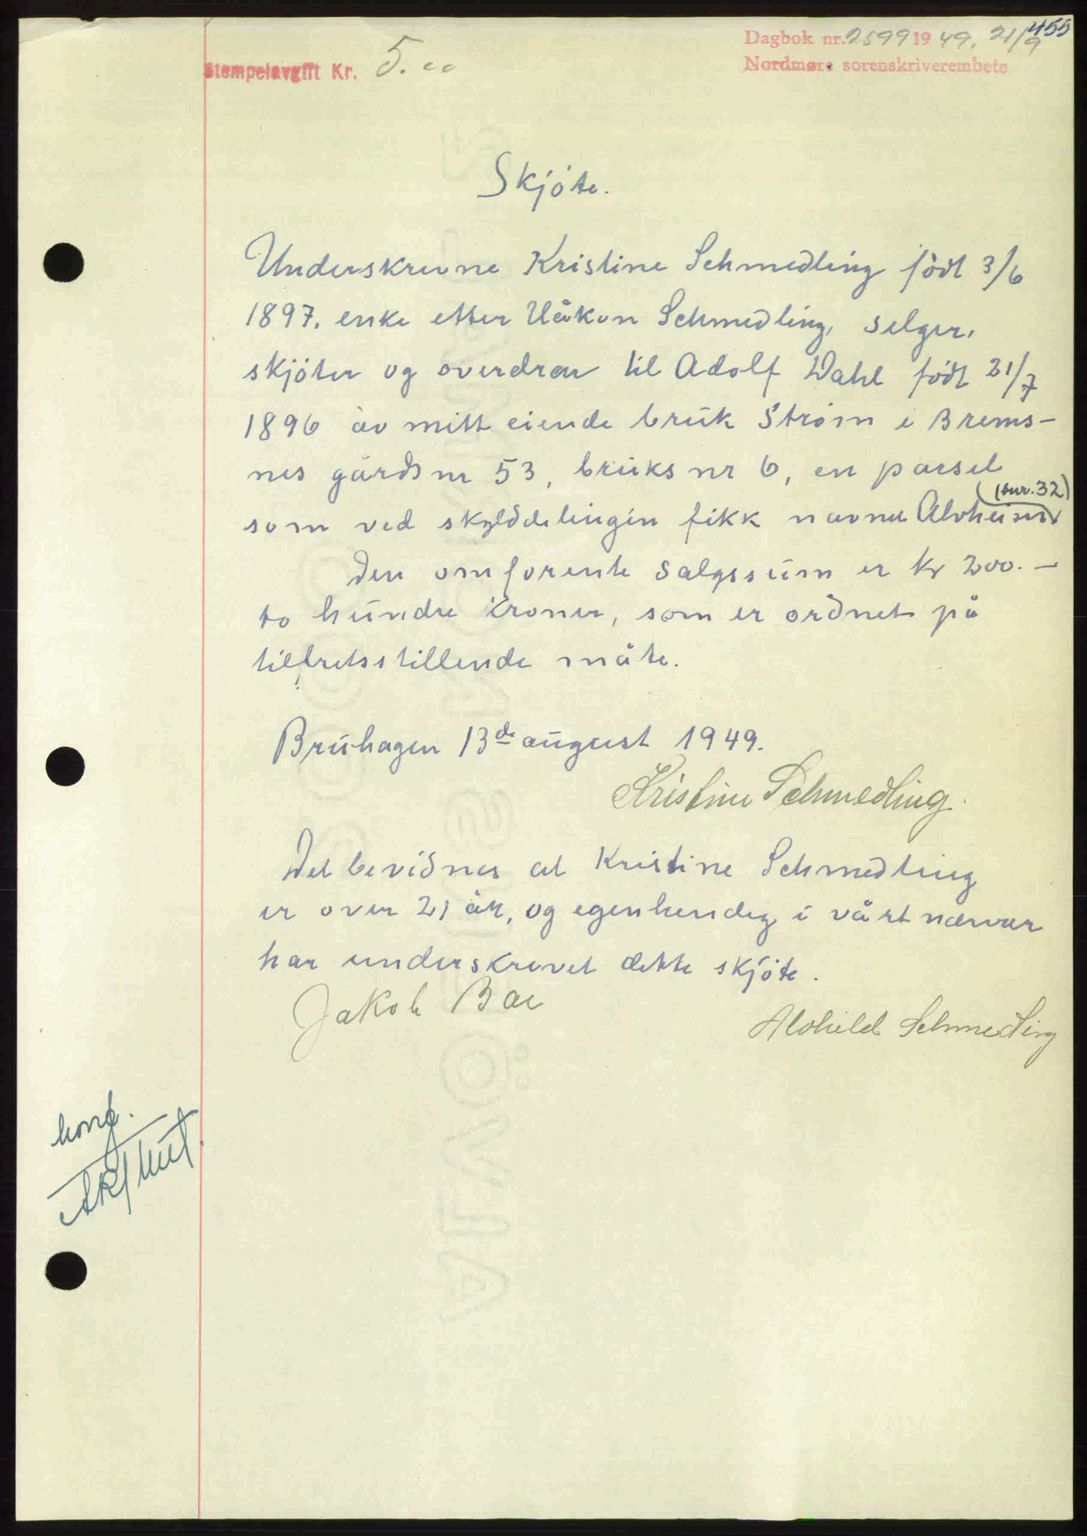 455
Dagbok nr. 2599 1949, 21/9
Nordmøre sorenskriverembete
Stempelavgift Kr. 5.00
Skjöte.
Underskrevne Kristine Schmedling födt 3/6
1897. enke etter Håkon Schmedling, selger,
skjöter og overdrar til Adolf Dahl födt 21/7
1896 av mitt eiende bruk Ström i Brems-
nes gårdsnr 53, bruksnr 6, en parsel
(bnr. 32)
som ved skylddelingen fikk navnet Alvheim
Den omforente salgssum er kr 200.-
to hundre kroner, som er ordnet på
tilfretsstillende måte.
Bruhagen 13de august 1949.
Kristine Schmedling.
Det bevidnes at Kristine Schmedling
er over 21 år, og egenhendig i vårt nærvær
har underskrevet dette skjöte.
Jakob Bae
Alvhild Schmedling
konf.